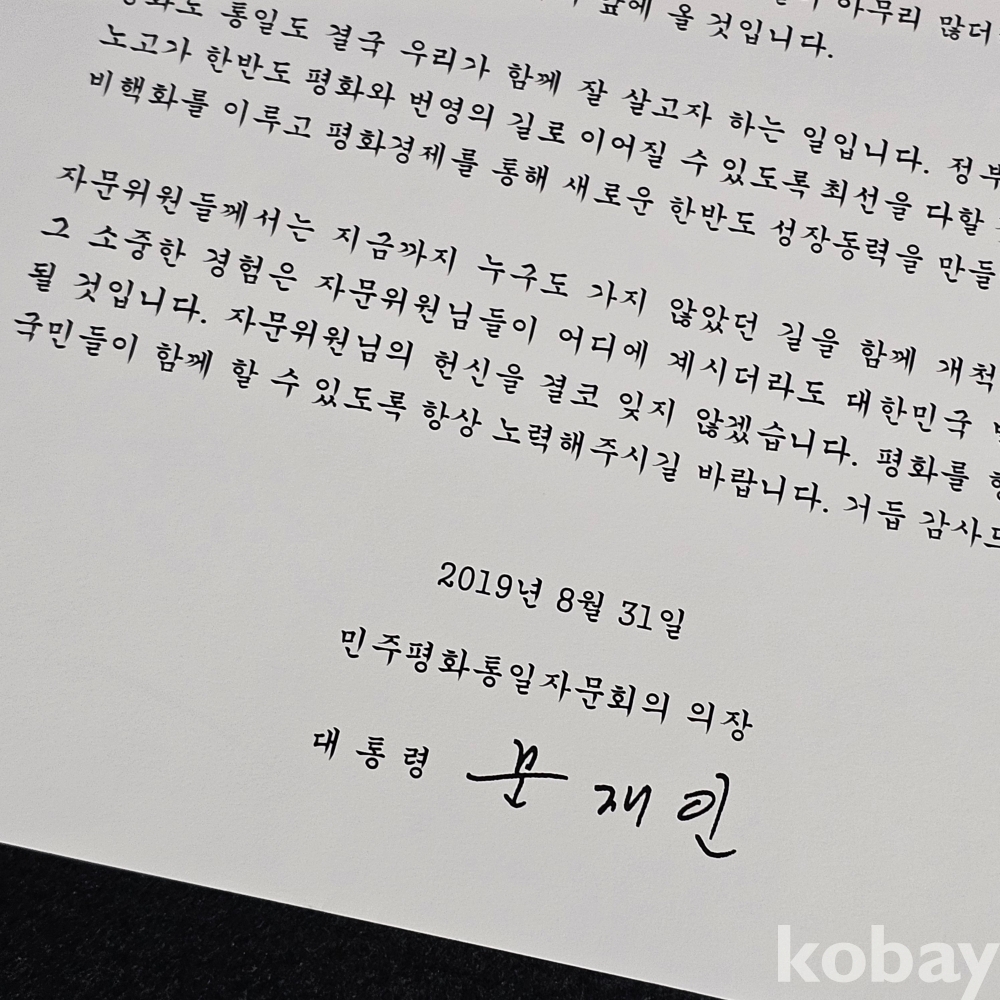 올 것입니다. 아무리 많더
통일도 결국 우리가 함께 잘 살고자 하는 일입니다. 정부
노고가 한반도 평화와 번영의 길로 이어질 수 있도록 최선을 다할
비핵화를 이루고 평화경제를 통해 새로운 한반도 성장동력을 만들
자문위원들께서는 지금까지 누구도 가지 않았던 길을 함께 개척
그 소중한 경험은 자문위원님들이 어디에 계시더라도 대한민국
될 것입니다. 자문위원님의 헌신을 결코 잊지 않겠습니다. 평화를
국민들이 함께 할 수 있도록 항상 노력해주시길 바랍니다. 거듭 감사드
2019년 8월 31일
민주평화통일자문회의 의장
대통령 문재인
kobay